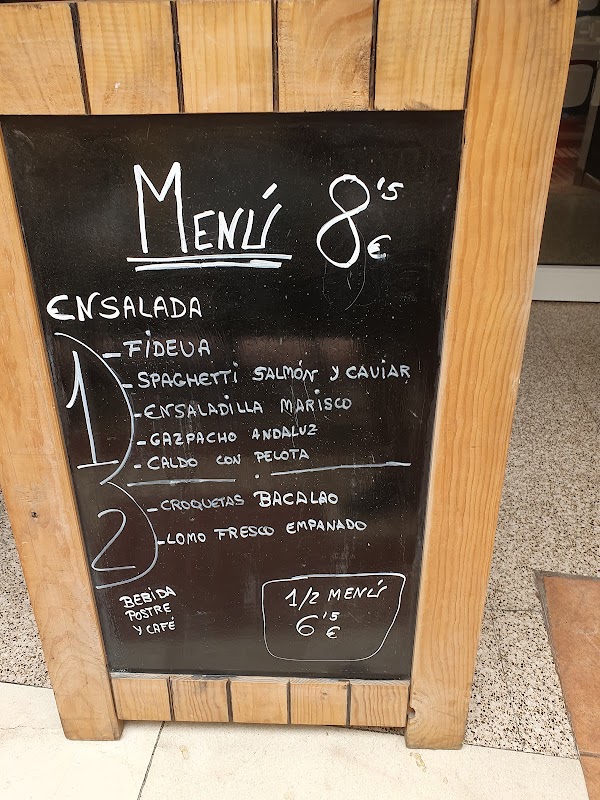 MENÚ 8'5 €
ENSALADA
1
- FIDEUA
- SPAGHETTI SALMÓN Y CAVIAR
- ENSALADILLA MARISCO
- GAZPACHO ANDALUZ
- CALDO CON PELOTA
2
- CROQUETAS BACALAO
- LOMO FRESCO EMPANADO
BEBIDA
POSTRE
Y CAFÉ
1/2 MENÚ
6'5 €